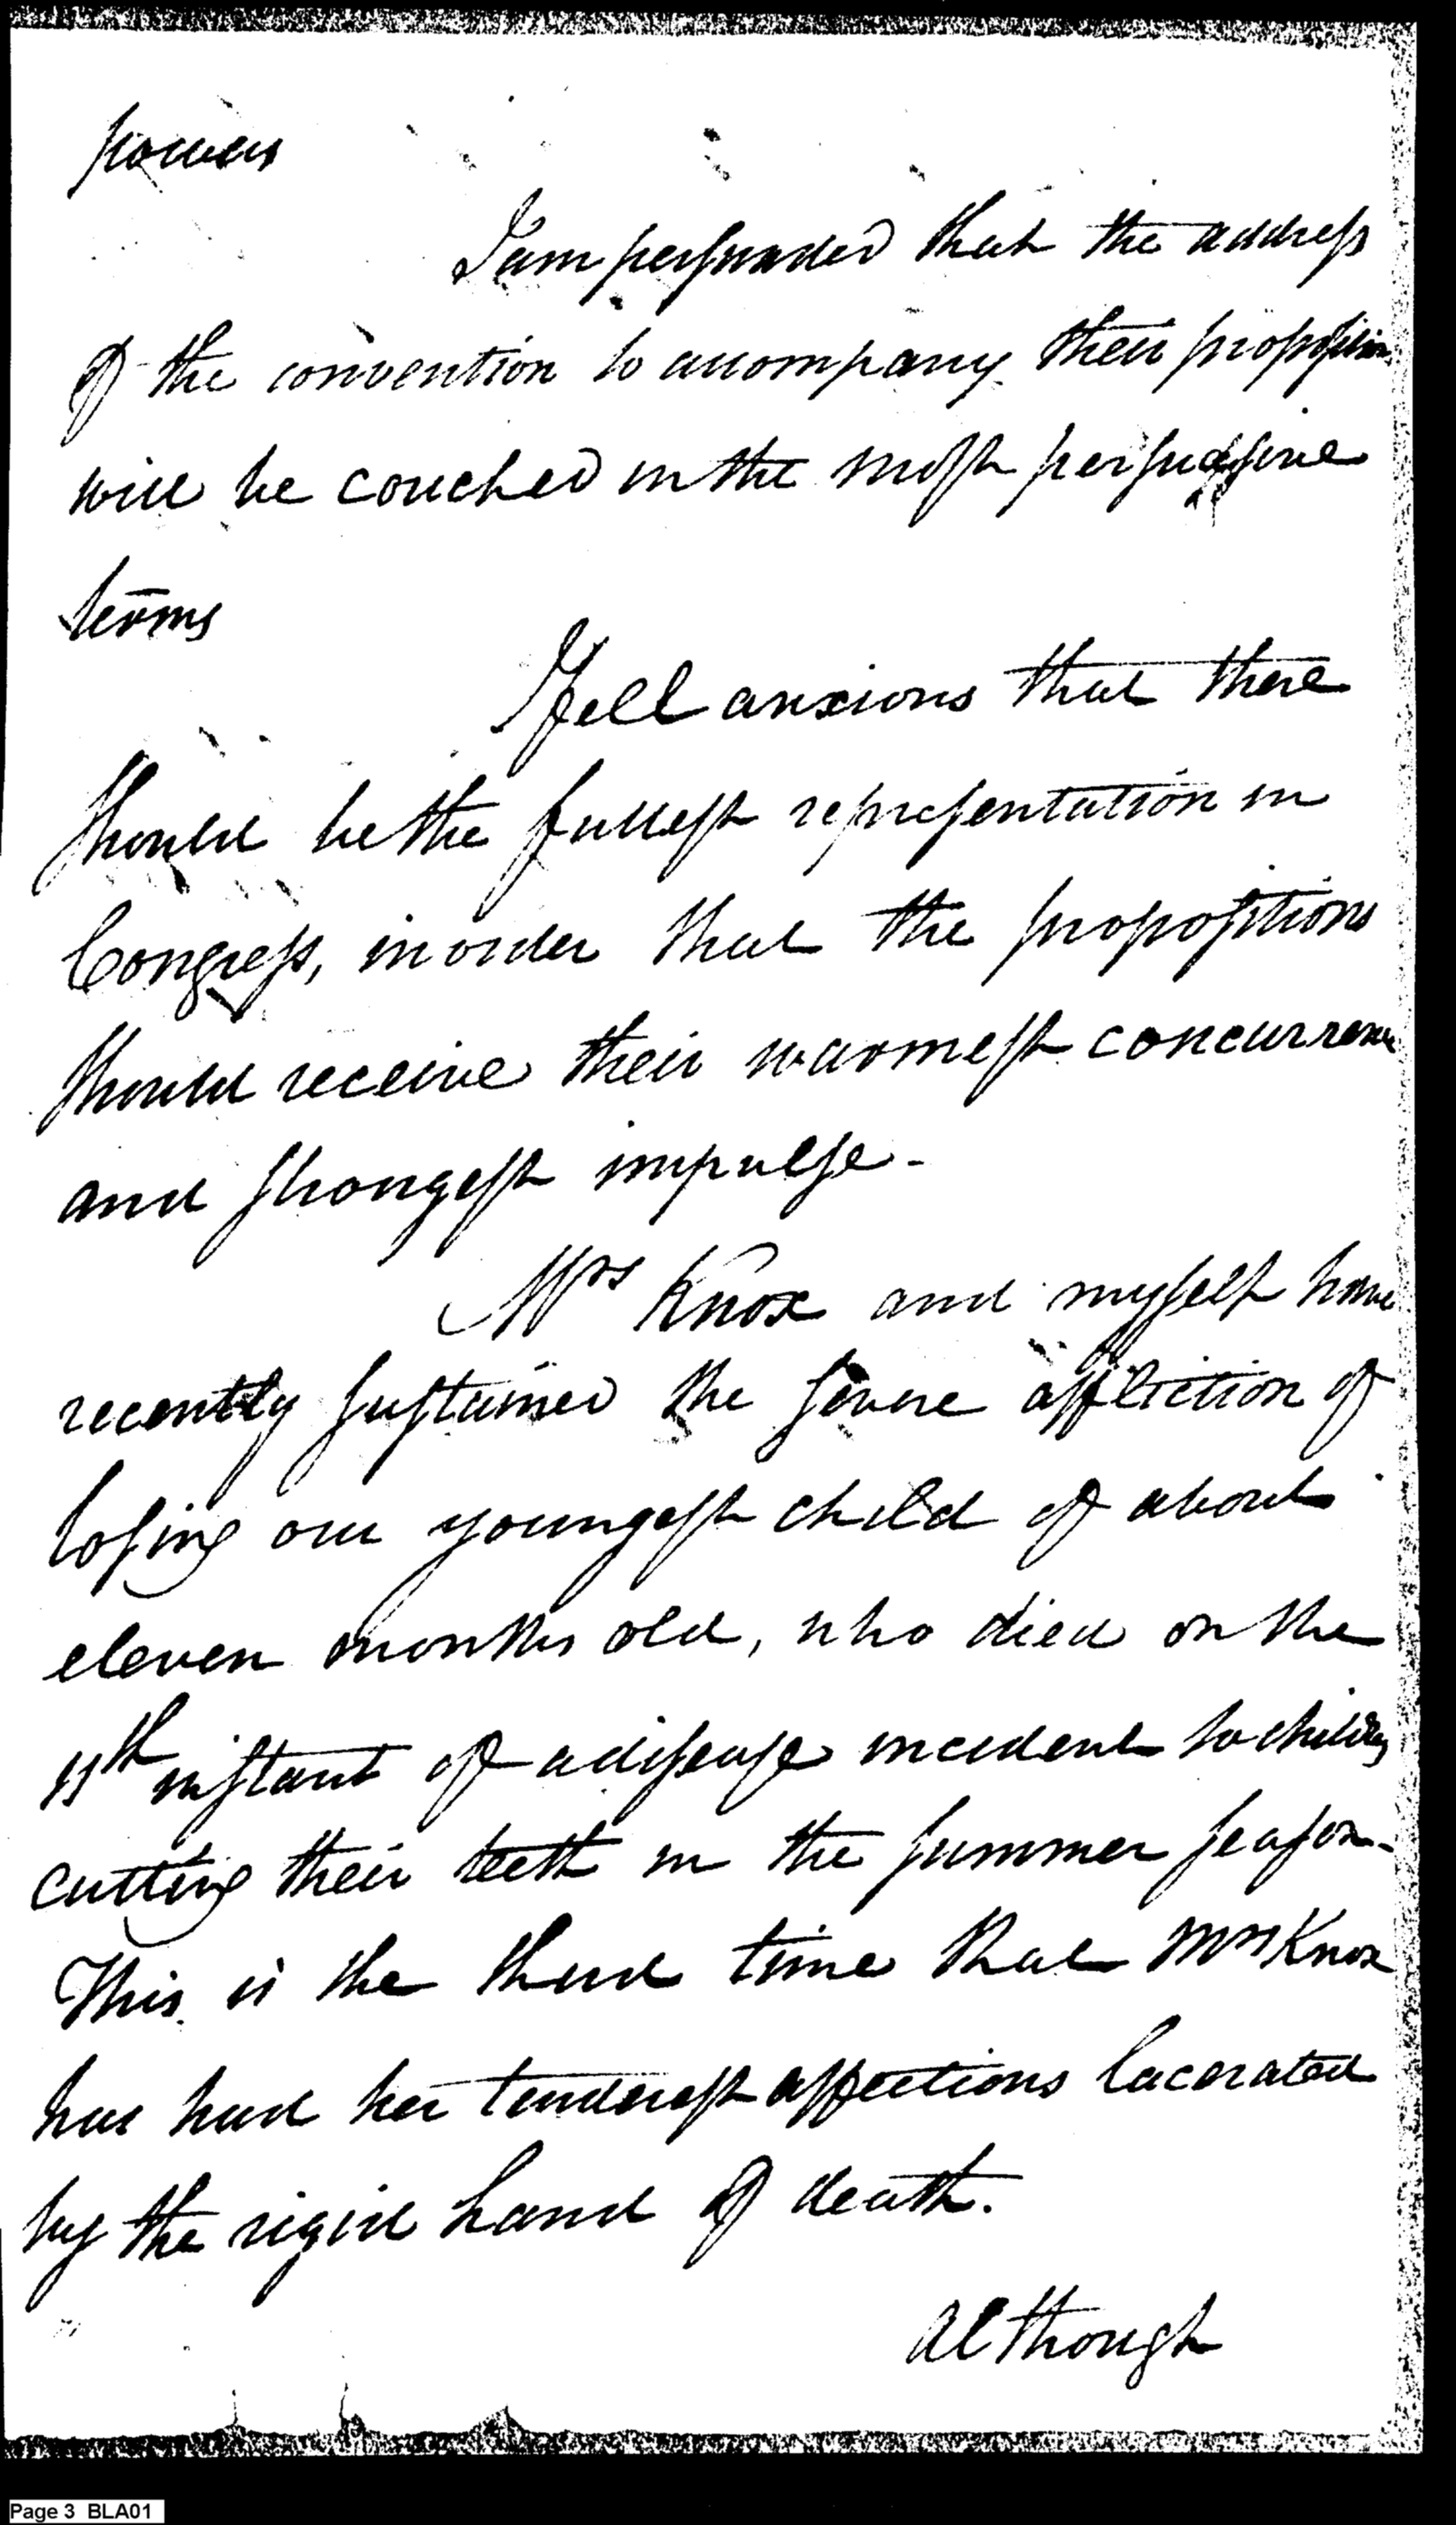 powers
I am persuaded that the address
of the convention to accompany their proposition
will be couched in the most persuasive
terms
I feel anxious that there
should be the fullest representation in
Congress, in order that the propositions
should receive their warmest concurrence
and strongest impulse -
Mrs Knox and myself have
recently sustained the severe affliction of
losing our youngest child of about
eleven months old, who died on the
11th instant of a disease incident to children
cutting their teeth in the summer season -
This is the third time that Mrs Knox
has had her tenderest affections lacerated
by the rigid hand of death.
Although
Page 3 BLA01